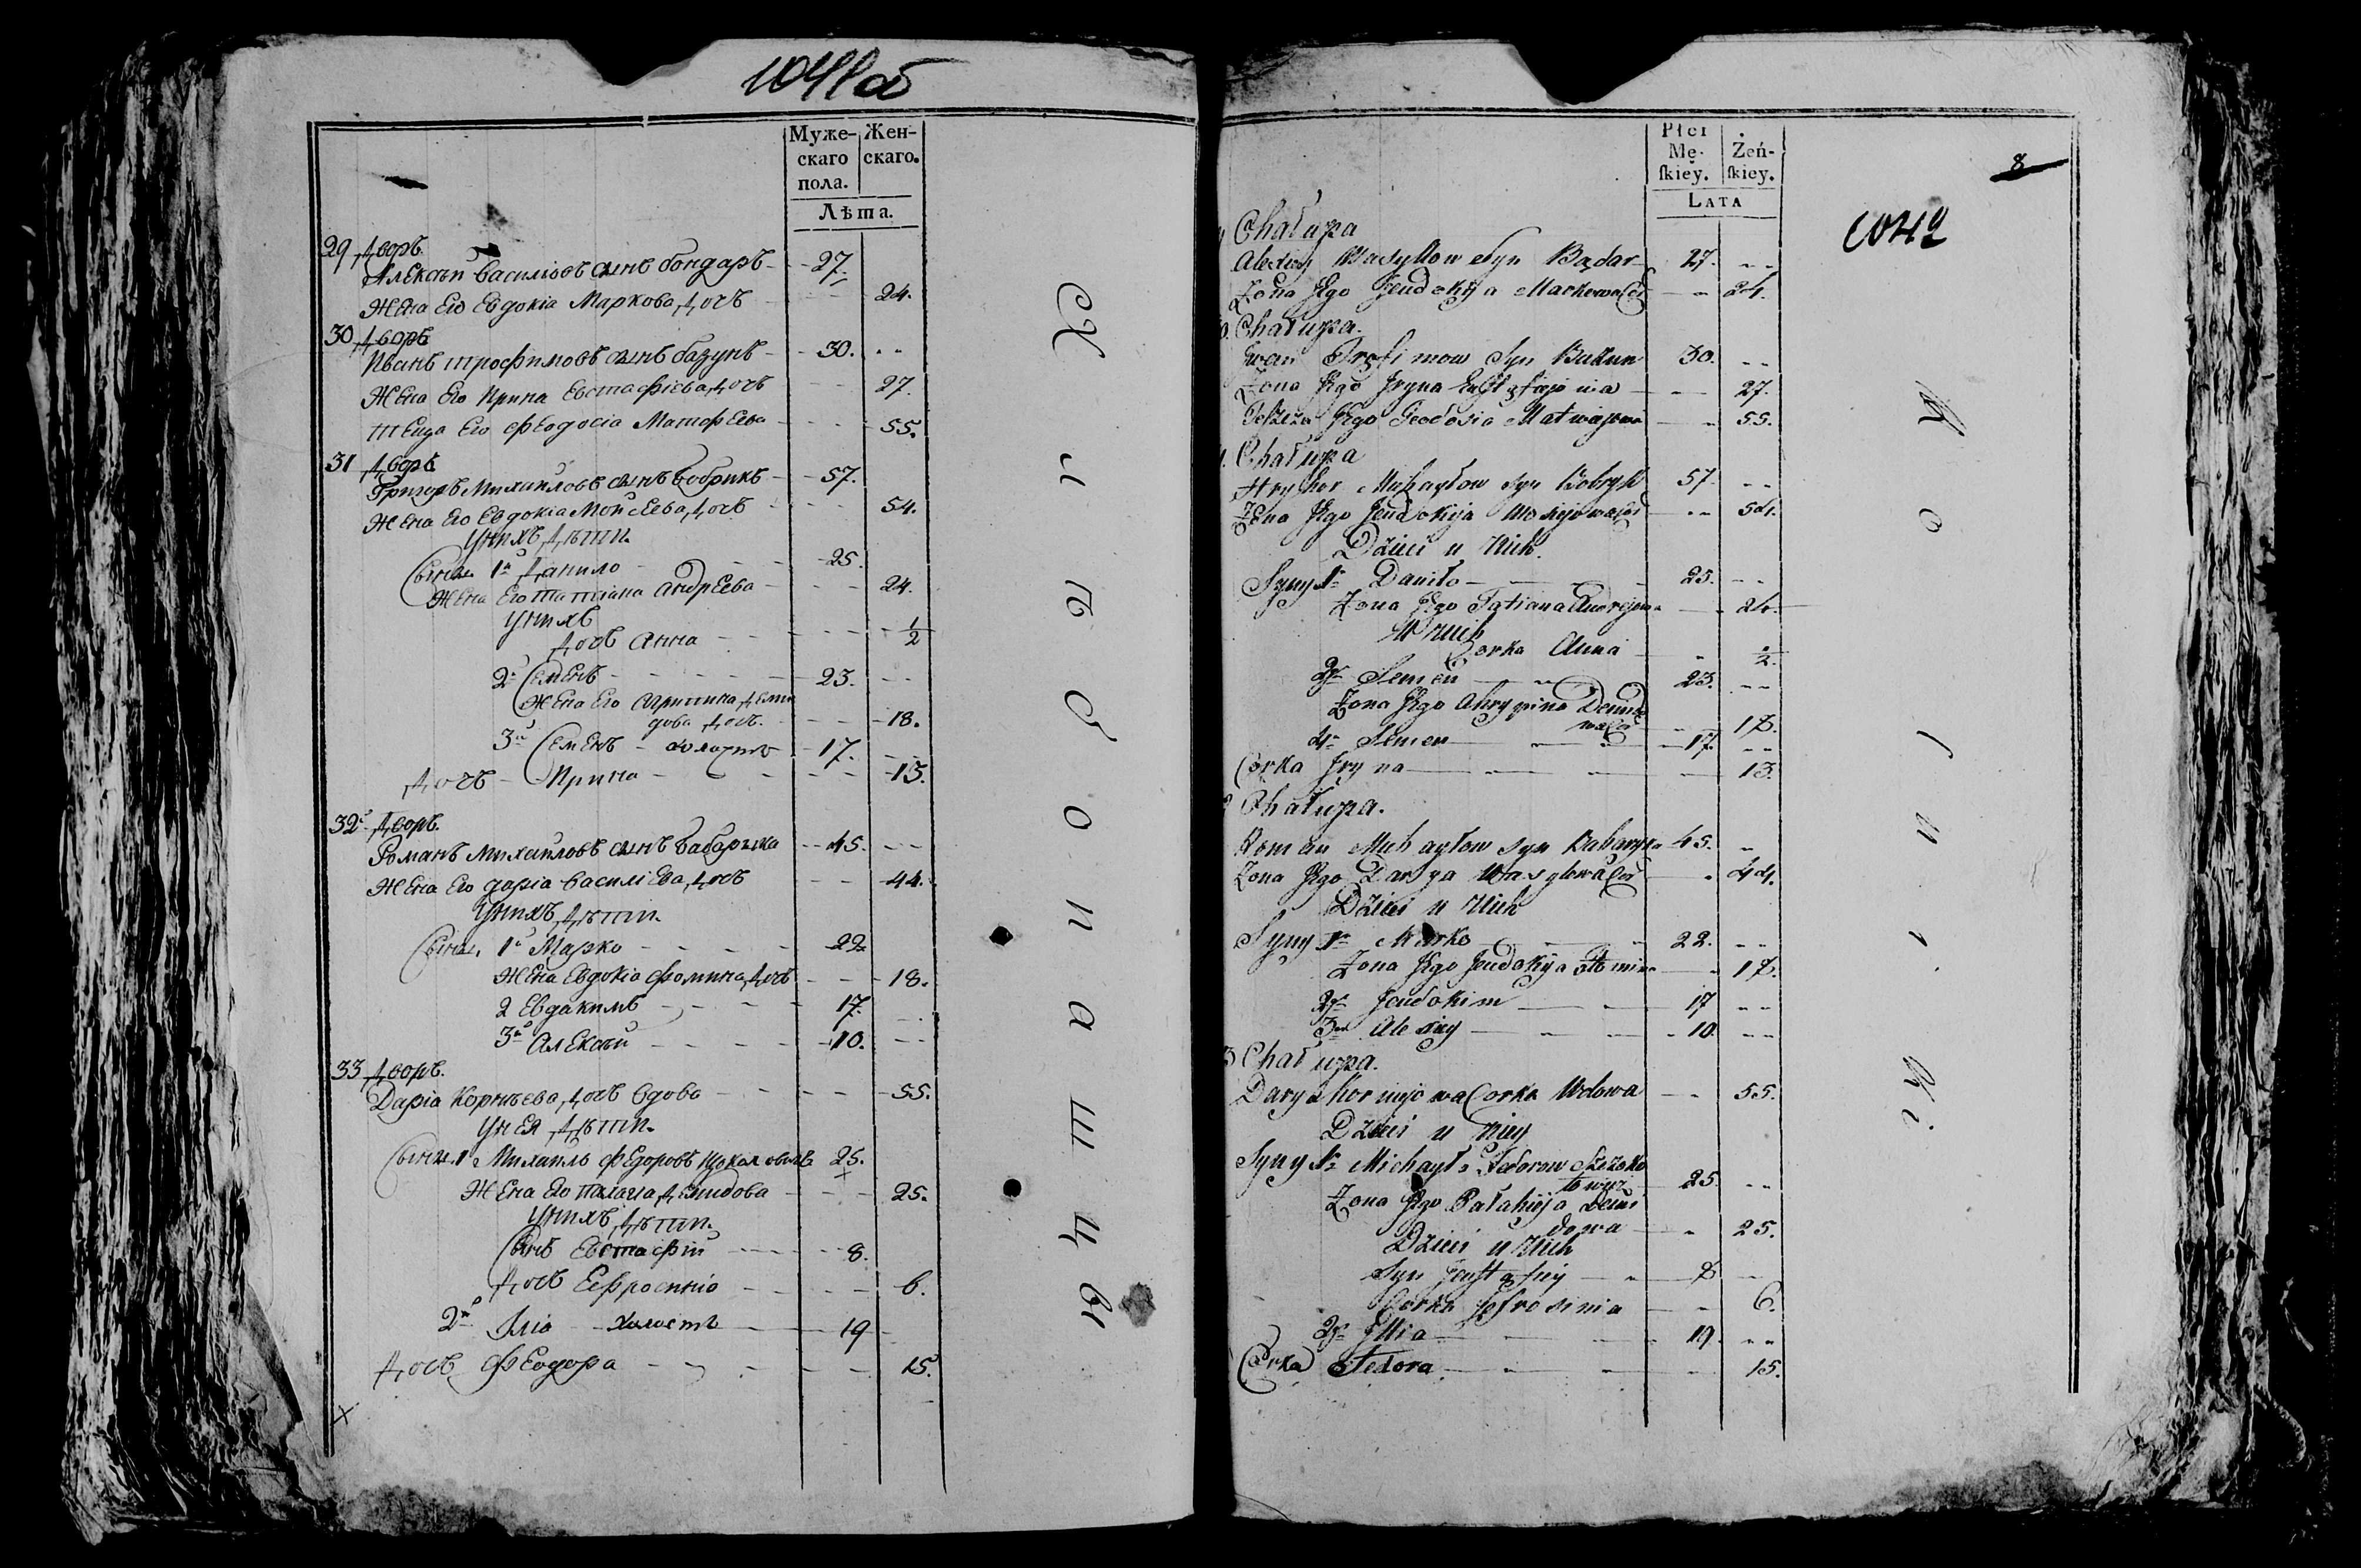 1041 об
Муже- Жен-
скаго скаго.
пола.
Лѣта.
29 Дворъ.
Алексѣй Василіовъ сынъ бондаръ - 27.
Жена Его Евдокіа Маркова дочъ 24.
30 Дворъ
Иванъ трофимовъ сынъ - 30.
Жена Его Ирина Евстафіева дочъ 27.
теща Его феодосіа Матфеева 55.
31 Дворъ
Григоръ Михайловъ сынъ бобрикъ - 57.
Жена Его Евдокіа Мойсеева дочъ 54.
У нихъ дѣти.
Сыны 1й Данило - 25.
Жена Его татіана андреева 24.
У нихъ
дочъ анна 1/2
2й Семенъ 23.
Жена Его агрипина деми
дова дочъ. 18.
3й Семенъ - холостъ 17.
дочъ - Ирина 13.
32й Дворъ.
Романъ Михайловъ сынъ 45.
Жена Его даріа василіева дочъ 44.
У нихъ дѣти.
Сыны, 1й Марко 22
Жена Евдокіа фомина дочъ 18.
2 Евдакимъ 17.
3й Алексѣй 10.
33 Дворъ.
Даріа Корнѣева дочъ вдова 55.
У нея дѣти.
Сыны. 1 Михаилъ федоровъ 25.
Жена Его Палагіа демидова 25.
У нихъ дѣти.
Сынъ Евстафій 8.
дочъ Ефросиніа 6.
2й Иліа - холостъ 19
дочъ феодора 15.
Płci
Mę- Żeń-
ſkiey. ſkiey.
LATA
8
1042
Chałupa
Alexiey Wasyllow Syn Bądar 27.
Żona Jego Jeudokija Markowa Cor 24.
Chałupa.
Iwan Trofimow Syn 30.
Żona Jego Iryna 27.
Jego Teodosia Matwiejowa 55.
Chałupa
Hryhor Michayłow Syn Bobryk 57.
Żona Jego Jeudokija Cor 54.
Dzieci u Nich.
Syny 1r Daniło 25.
Żona Jego Tatiana 24.
U Nich
Corka Anna 1/2.
2gi Semen 23.
Żona Jego Ahrypina Demido
wa Cor 18.
Semen 17.
Corka Iryna 13.
Chałupa.
Roman Michayłow Syn 45.
Żona Jego Darya Wasylowa Cor 44.
Dzieci u Nich
Syny 1r Marko 22.
Żona Jego Jeudokija 18.
2gi Jeudokim 17
3ci Alexiey 10.
Chałupa.
Darya Corka Wdowa 55.
Dzieci u Niey
Syny 1r Michayło Fedorow 25.
Żona Jego Pałahija Demi
dowa 25.
Dzieci u Nich
Syn 8
Corka Jefrosinia 6.
2gi Illia 19.
Corka Fedora 15.